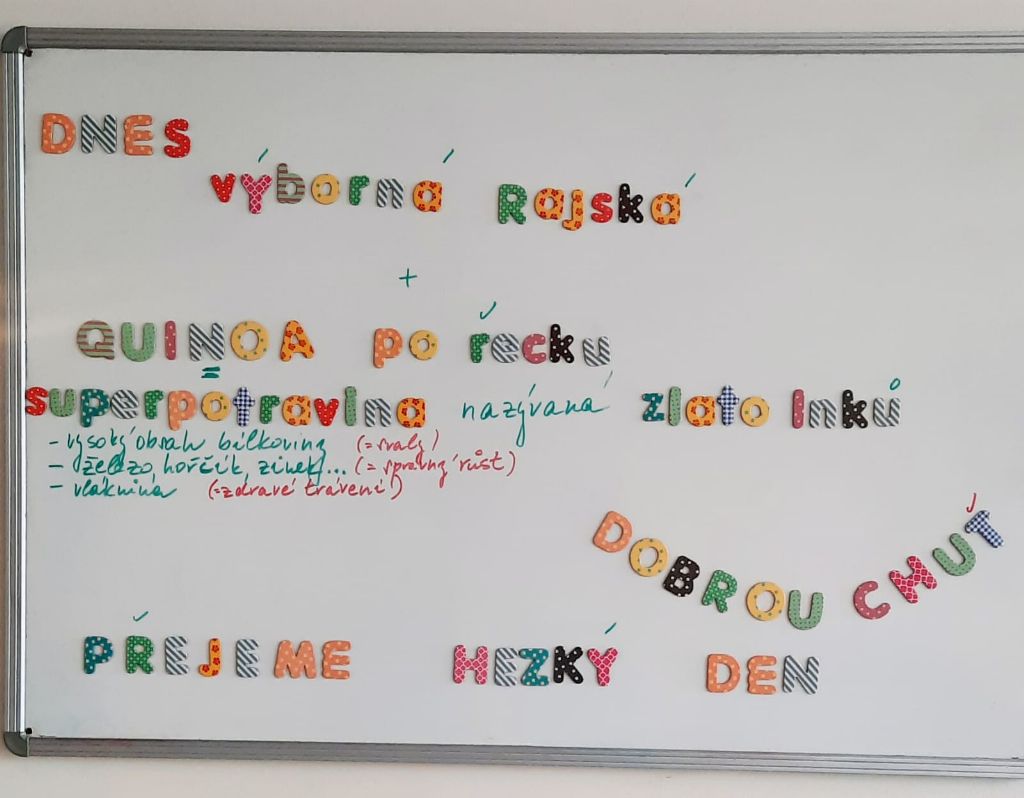 DNES
výborná Rajská
+
QUINOA po řecku
=
superpotravina nazývaná zlato Inků
- vysoký obsah bílkoviny (= svaly)
- železo, hořčík, zinek... (= správný růst)
- vláknina (= zdravé trávení)
DOBROU CHUŤ
PŘEJEME HEZKÝ DEN